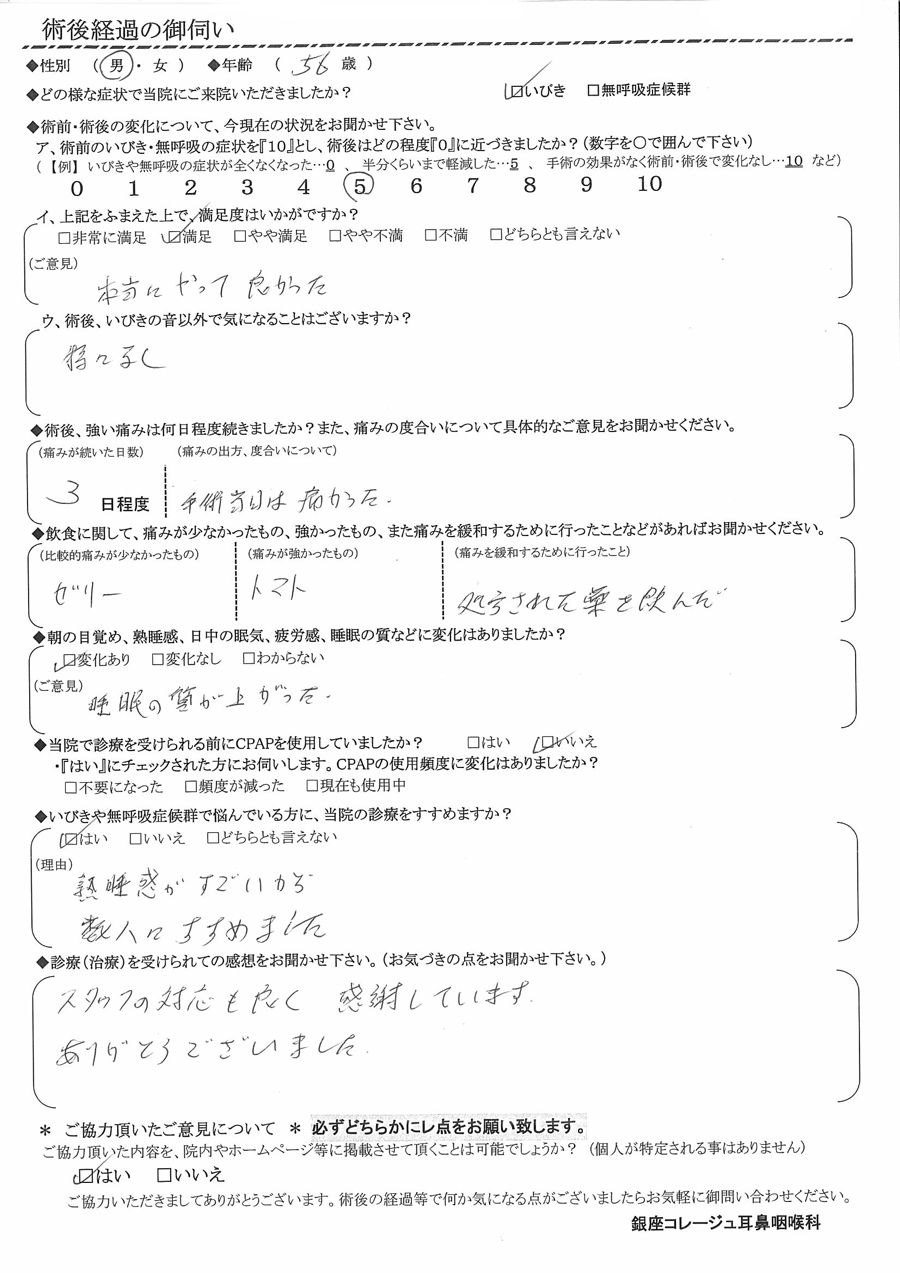 術後経過の御伺い
◆性別 （ 男 ・ 女 ） ◆年齢 （ 56 歳 ）
◆どの様な症状で当院にご来院いただきましたか？ ☑いびき □無呼吸症候群
◆術前・術後の変化について、今現在の状況をお聞かせ下さい。
ア、術前のいびき・無呼吸の症状を『10』とし、術後はどの程度『0』に近づきましたか？（数字を〇で囲んで下さい）
（【例】いびきや無呼吸の症状が全くなくなった…0 、 半分くらいまで軽減した…5 、 手術の効果がなく術前・術後で変化なし…10 など）
0 1 2 3 4 5 6 7 8 9 10
イ、上記をふまえた上で、満足度はいかがですか？
□非常に満足 ☑満足 □やや満足 □やや不満 □不満 □どちらとも言えない
（ご意見）
本当に やって 良かった
ウ、術後、いびきの音以外で気になることはございますか？
特になし
◆術後、強い痛みは何日程度続きましたか？また、痛みの度合いについて具体的なご意見をお聞かせください。
（痛みが続いた日数） （痛みの出方、度合いについて）
3 日程度 手術当日は 痛かった.
◆飲食に関して、痛みが少なかったもの、強かったもの、また痛みを緩和するために行ったことなどがあればお聞かせください。
（比較的痛みが少なかったもの） （痛みが強かったもの） （痛みを緩和するために行ったこと）
ゼリー トマト 処方された薬を飲んだ
◆朝の目覚め、熟睡感、日中の眠気、疲労感、睡眠の質などに変化はありましたか？
☑変化あり □変化なし □わからない
（ご意見）
睡眠の質が上がった.
◆当院で診療を受けられる前にCPAPを使用していましたか？ □はい ☑いいえ
・『はい』にチェックされた方にお伺いします。CPAPの使用頻度に変化はありましたか？
□不要になった □頻度が減った □現在も使用中
◆いびきや無呼吸症候群で悩んでいる方に、当院の診療をすすめますか？
☑はい □いいえ □どちらとも言えない
（理由）
熟睡感が すごいから
数人に すすめました
◆診療（治療）を受けられての感想をお聞かせ下さい。（お気づきの点をお聞かせ下さい。）
スタッフの対応も良く 感謝しています.
ありがとうございました.
＊ ご協力頂いたご意見について ＊ 必ずどちらかにレ点をお願い致します。
ご協力頂いた内容を、院内やホームページ等に掲載させて頂くことは可能でしょうか？ （個人が特定される事はありません）
☑はい □いいえ
ご協力いただきましてありがとうございます。術後の経過等で何か気になる点がございましたらお気軽に御問い合わせください。
銀座コレージュ耳鼻咽喉科